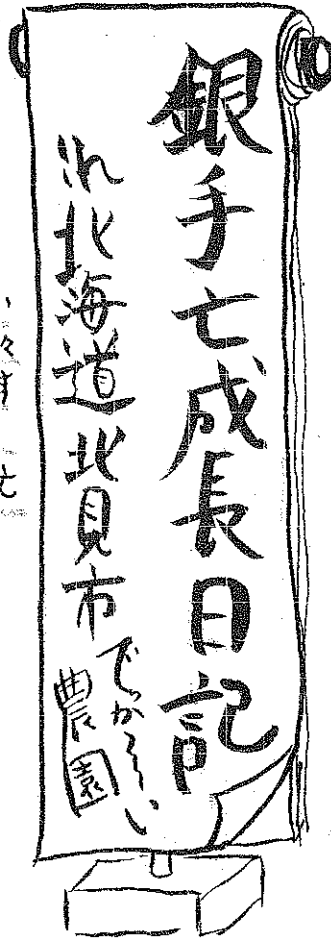 銀手亡成長日記
in北海道北見市
農園